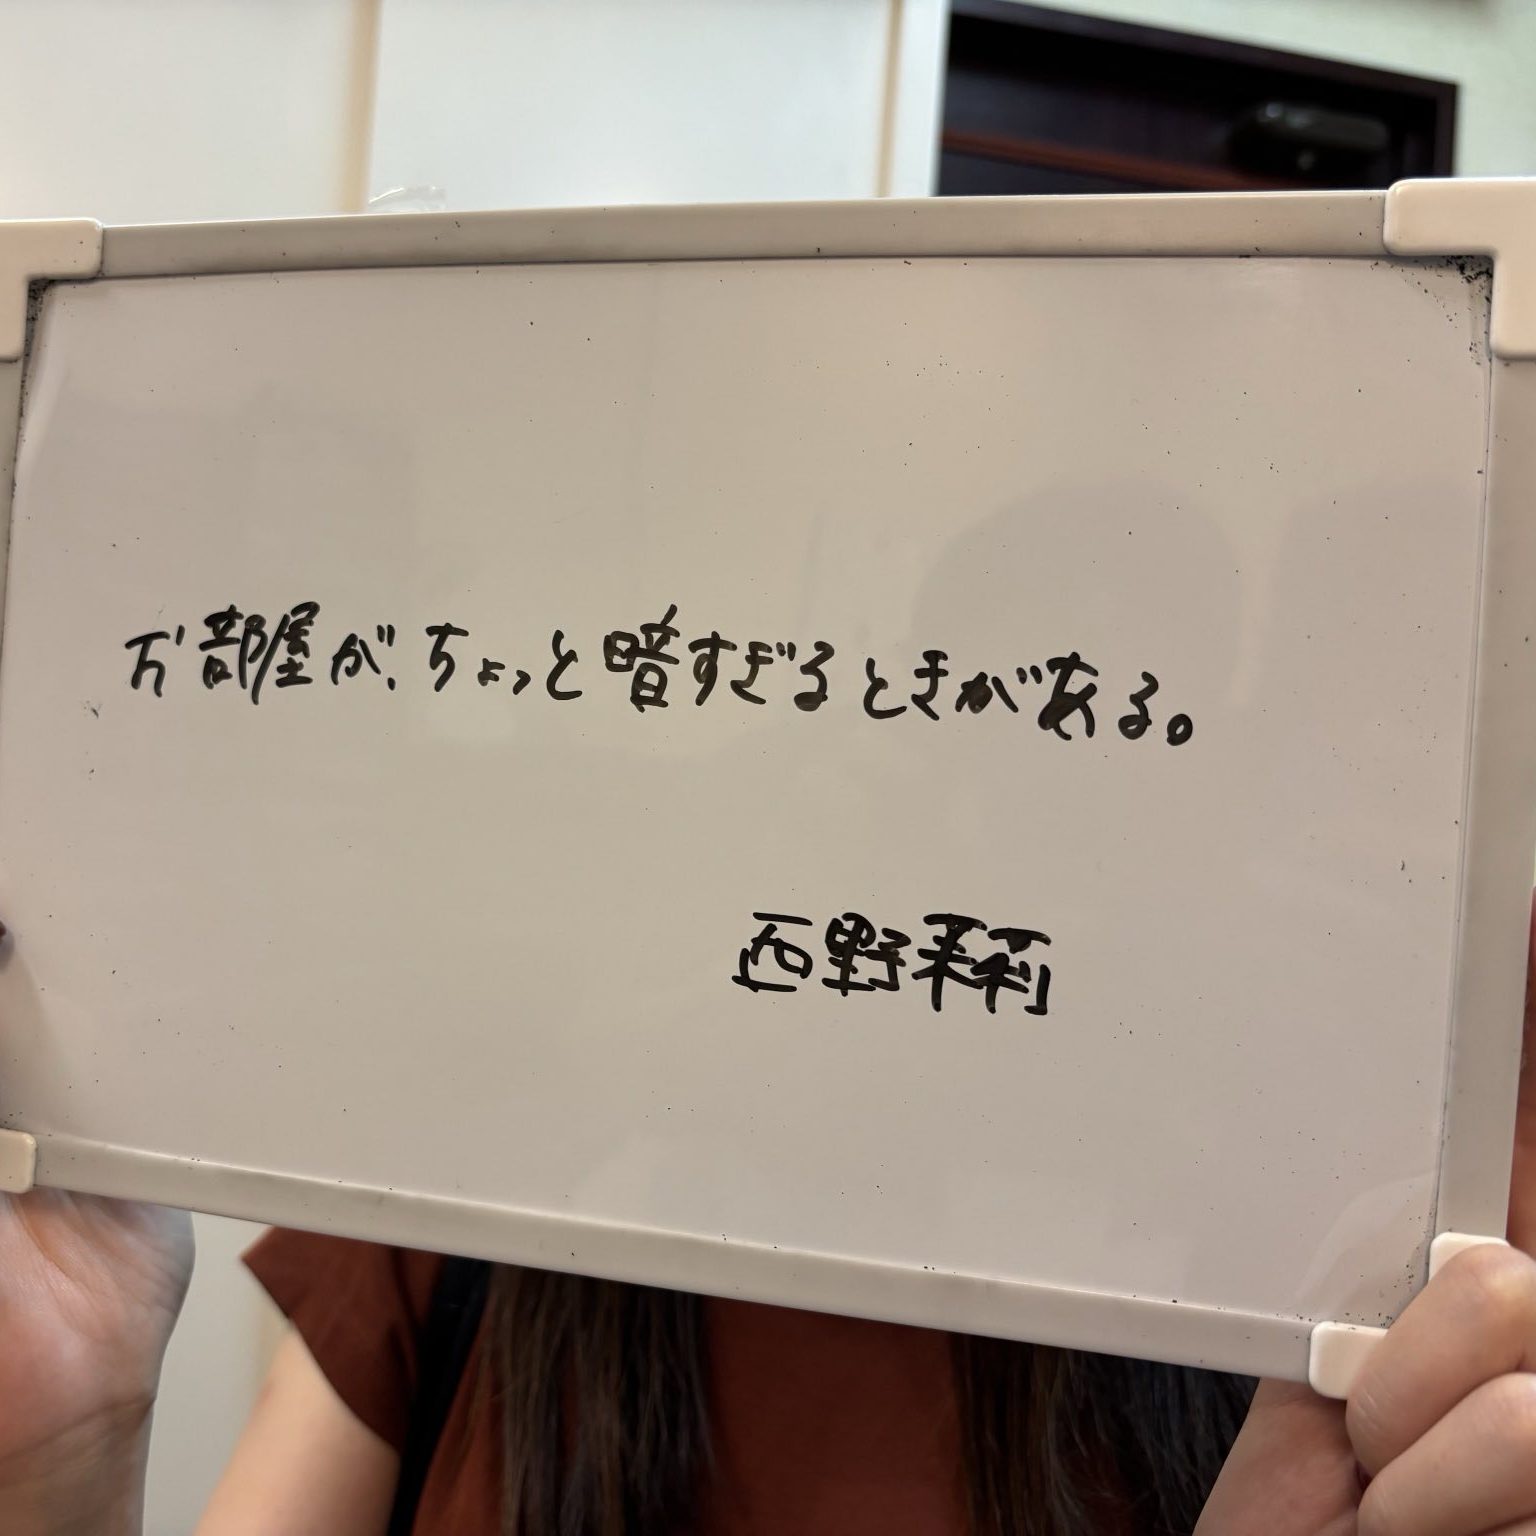 お部屋が、ちょっと暗すぎるときがある。
西野茉莉